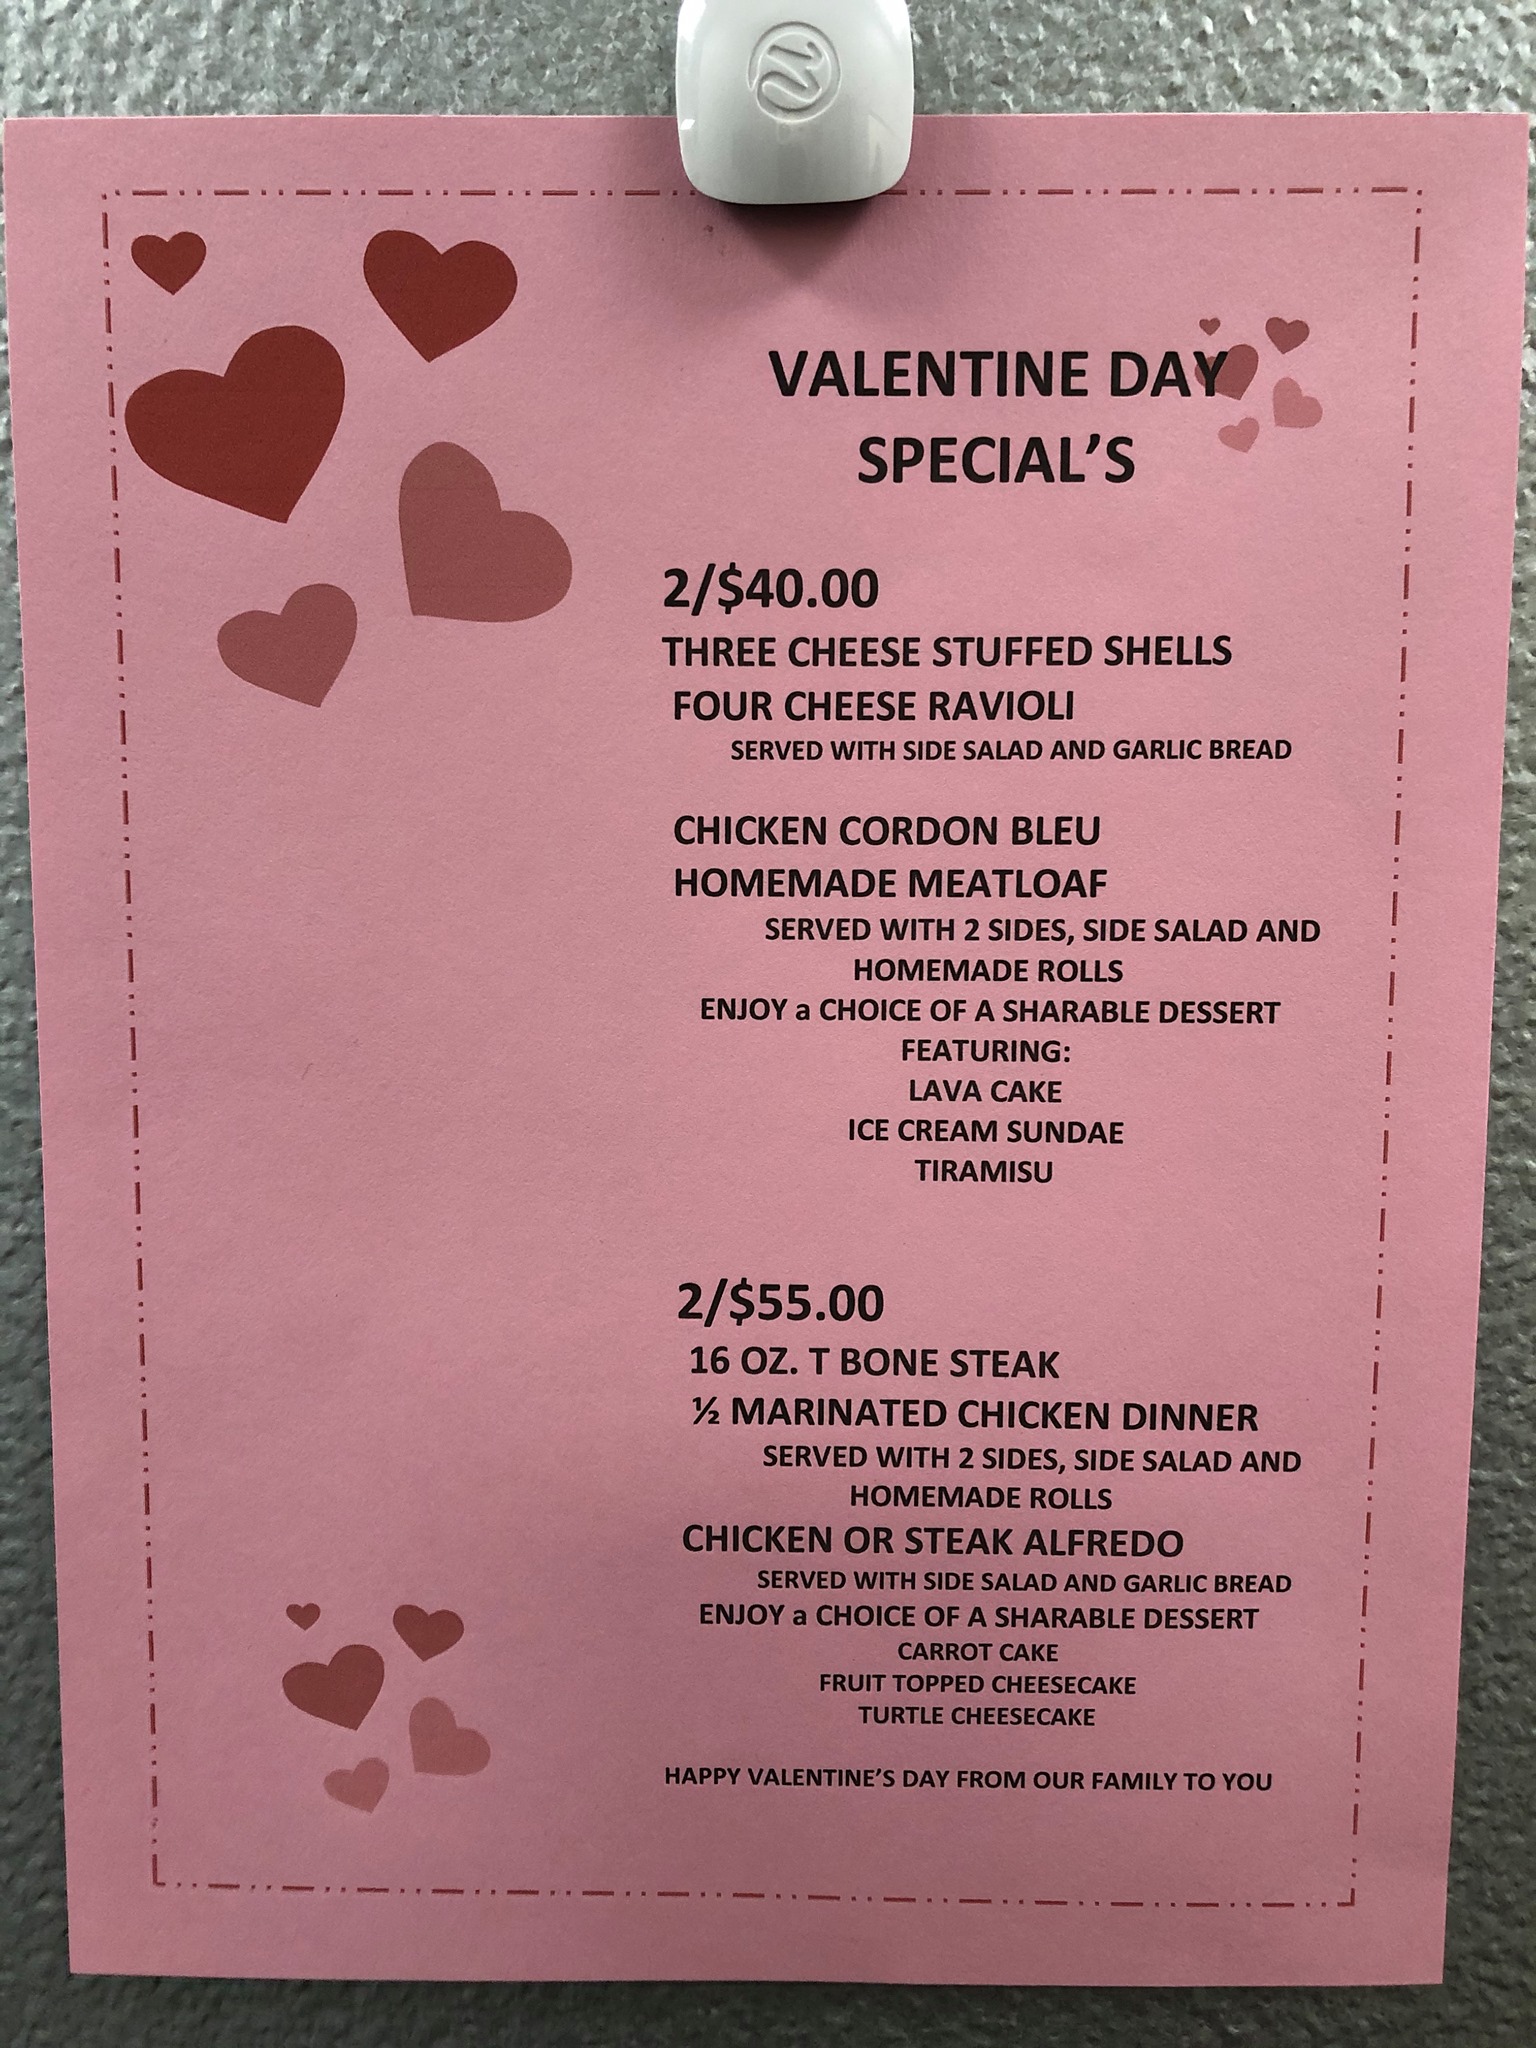 VALENTINE DAY
SPECIAL'S
2/$40.00
THREE CHEESE STUFFED SHELLS
FOUR CHEESE RAVIOLI
SERVED WITH SIDE SALAD AND GARLIC BREAD
CHICKEN CORDON BLEU
HOMEMADE MEATLOAF
SERVED WITH 2 SIDES, SIDE SALAD AND
HOMEMADE ROLLS
ENJOY a CHOICE OF A SHARABLE DESSERT
FEATURING:
LAVA CAKE
ICE CREAM SUNDAE
TIRAMISU
2/$55.00
16 OZ. T BONE STEAK
½ MARINATED CHICKEN DINNER
SERVED WITH 2 SIDES, SIDE SALAD AND
HOMEMADE ROLLS
CHICKEN OR STEAK ALFREDO
SERVED WITH SIDE SALAD AND GARLIC BREAD
ENJOY a CHOICE OF A SHARABLE DESSERT
CARROT CAKE
FRUIT TOPPED CHEESECAKE
TURTLE CHEESECAKE
HAPPY VALENTINE'S DAY FROM OUR FAMILY TO YOU